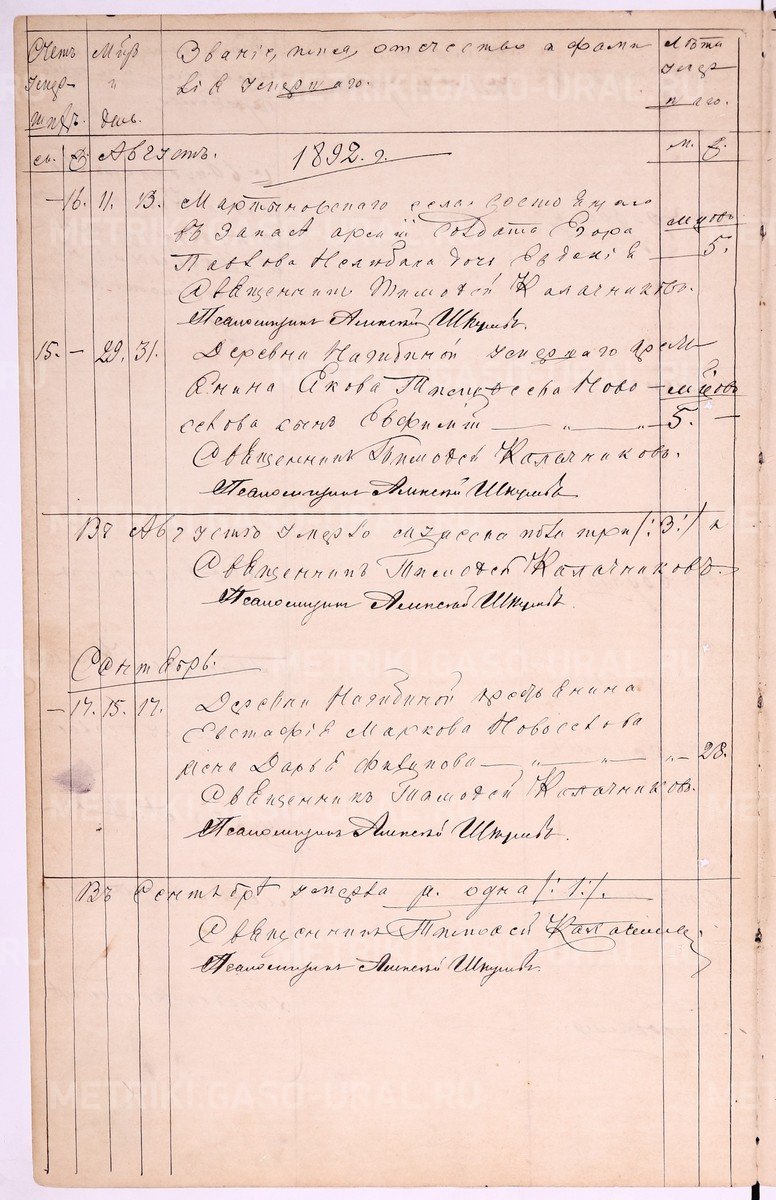 Счетъ умер- шихъ.
Мѣс. и день.
Званіе, имя, отчество и фами-
лія умершаго.
Лѣта умер- шаго.
м. ж. Августъ. 1892 г. м. ж.
— 16. 11. 13. Мартыновскаго села состоящаго
въ запасѣ арміи солдата Егора мѣсяцовъ
Павлова дочь Евдокія — 5.
Священникъ Тимофей Калачниковъ.
Псаломщикъ Алексѣй
15. — 29. 31. Деревни Нагибиной умершаго кресть-
янина Якова Ново- мѣсяцовъ
селова сынъ Евфимій — „ — „ — 5. —
Священникъ Тимофей Калачниковъ.
Псаломщикъ Алексѣй
Въ Августѣ умерло три /:3:/
Священникъ Тимофей Калачниковъ.
Псаломщикъ Алексѣй
Сентябрь.
— 17. 15. 17. Деревни Нагибиной крестьянина
Евстафія Маркова Новоселова
жена Дарья Филипова — „ — „ — „ — 28.
Священникъ Тимофей Калачниковъ.
Псаломщикъ Алексѣй
Въ Сентябрѣ умерла одна /:1:/.
Священникъ Тимофей Калачниковъ
Псаломщикъ Алексѣй
METRIKI.GASO-URAL.RU